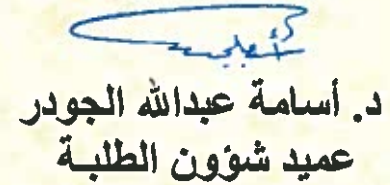 د. أسامة عبدالله الجودر
عميد شؤون الطلبة